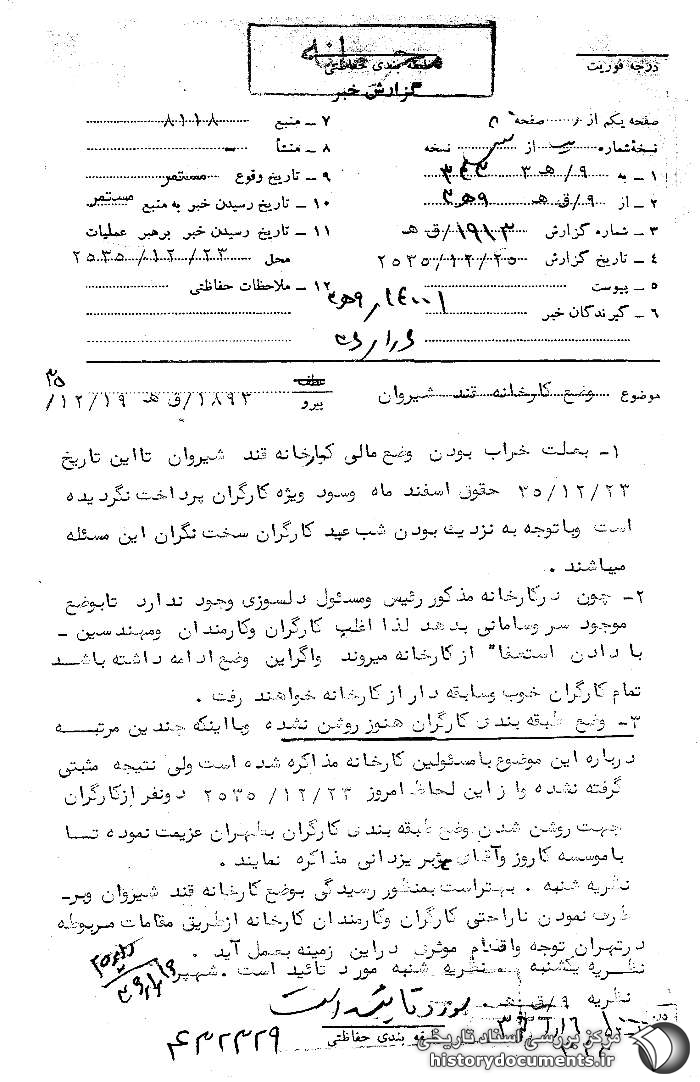 محرمانه
طبقه بندی حفاظتی
گزارش خبر
درجه فوریت
صفحه یکم از صفحه
نسخه شماره از نسخه
۱ - به ۹ / هـ ۳
۲ - از ۹ / ق هـ
۳ - شماره گزارش ۱۹۱۳ / ق هـ
۴ - تاریخ گزارش ۲۵۳۵/۱۲/۲۵
۵ - پیوست
۶ - گیرندگان خبر
۷ - منبع ۸۱۱۸
۸ - منشأ -
۹ - تاریخ وقوع مستمر
۱۰ - تاریخ رسیدن خبر به منبع مستمر
۱۱ - تاریخ رسیدن خبر برهبر عملیات
محل ۲۵۳۵/۱۲/۲۳
۱۲ - ملاحظات حفاظتی
موضوع وضع کارخانه قند شیروان
عطف
پیرو ۱۸۹۳ / ق هـ ۱۲/۱۹/
۳۵
۱- بعلت خراب بودن وضع مالی کارخانه قند شیروان تا این تاریخ
۳۵/۱۲/۲۳ حقوق اسفند ماه وسود ویژه کارگران پرداخت نگردیده
است وباتوجه به نزدیک بودن شب عید کارگران سخت نگران این مسئله
میباشند .
۲- چون درکارخانه مذکور رئیس ومسئول دلسوزی وجود ندارد تابوضع
موجود سر وسامانی بدهد لذا اغلب کارگران وکارمندان ومهندسین -
با دادن استعفا" از کارخانه میروند واگراین وضع ادامه داشته باشد
تمام کارگران خوب وسابقه دار از کارخانه خواهند رفت .
۳- وضع طبقه بندی کارگران هنوز روشن نشده وبااینکه چندین مرتبه
درباره این موضوع بامسئولین کارخانه مذاکره شده است ولی نتیجه مثبتی
گرفته نشده و از این لحاظ امروز ۲۵۳۵/۱۲/۲۳ دونفر ازکارگران
جهت روشن شدن وضع طبقه بندی کارگران بطهران عزیمت نموده تا
باموسسه کاروز وآقای هژبر یزدانی مذاکره نمایند .
نظریه شنبه . بهتراست بمنظور رسیدگی بوضع کارخانه قند شیروان وبر-
طرف نمودن ناراحتی کارگران وکارمندان کارخانه ازطریق مقامات مربوطه
درتهران توجه واقدام موثری دراین زمینه بعمل آید .
نظریه یکشنبه . نظریه شنبه مورد تائید است . شهپر
نظریه ۹ / ق هـ . مورد تائید است
طبقه بندی حفاظتی
۴۳۲۳۲۹
مرکز بررسی اسناد تاریخی
historydocuments.ir